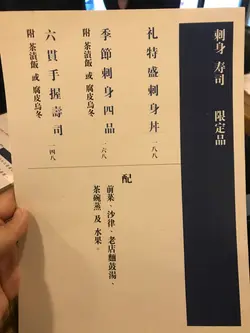 刺身 壽司 限定品
礼特盛刺身丼 一八八
季節刺身四品 一六八
附 茶漬飯 或 腐皮烏冬
六貫手握壽司 一四八
附 茶漬飯 或 腐皮烏冬
配
前菜、沙律、老店麵豉湯、
茶碗蒸 及 水果。